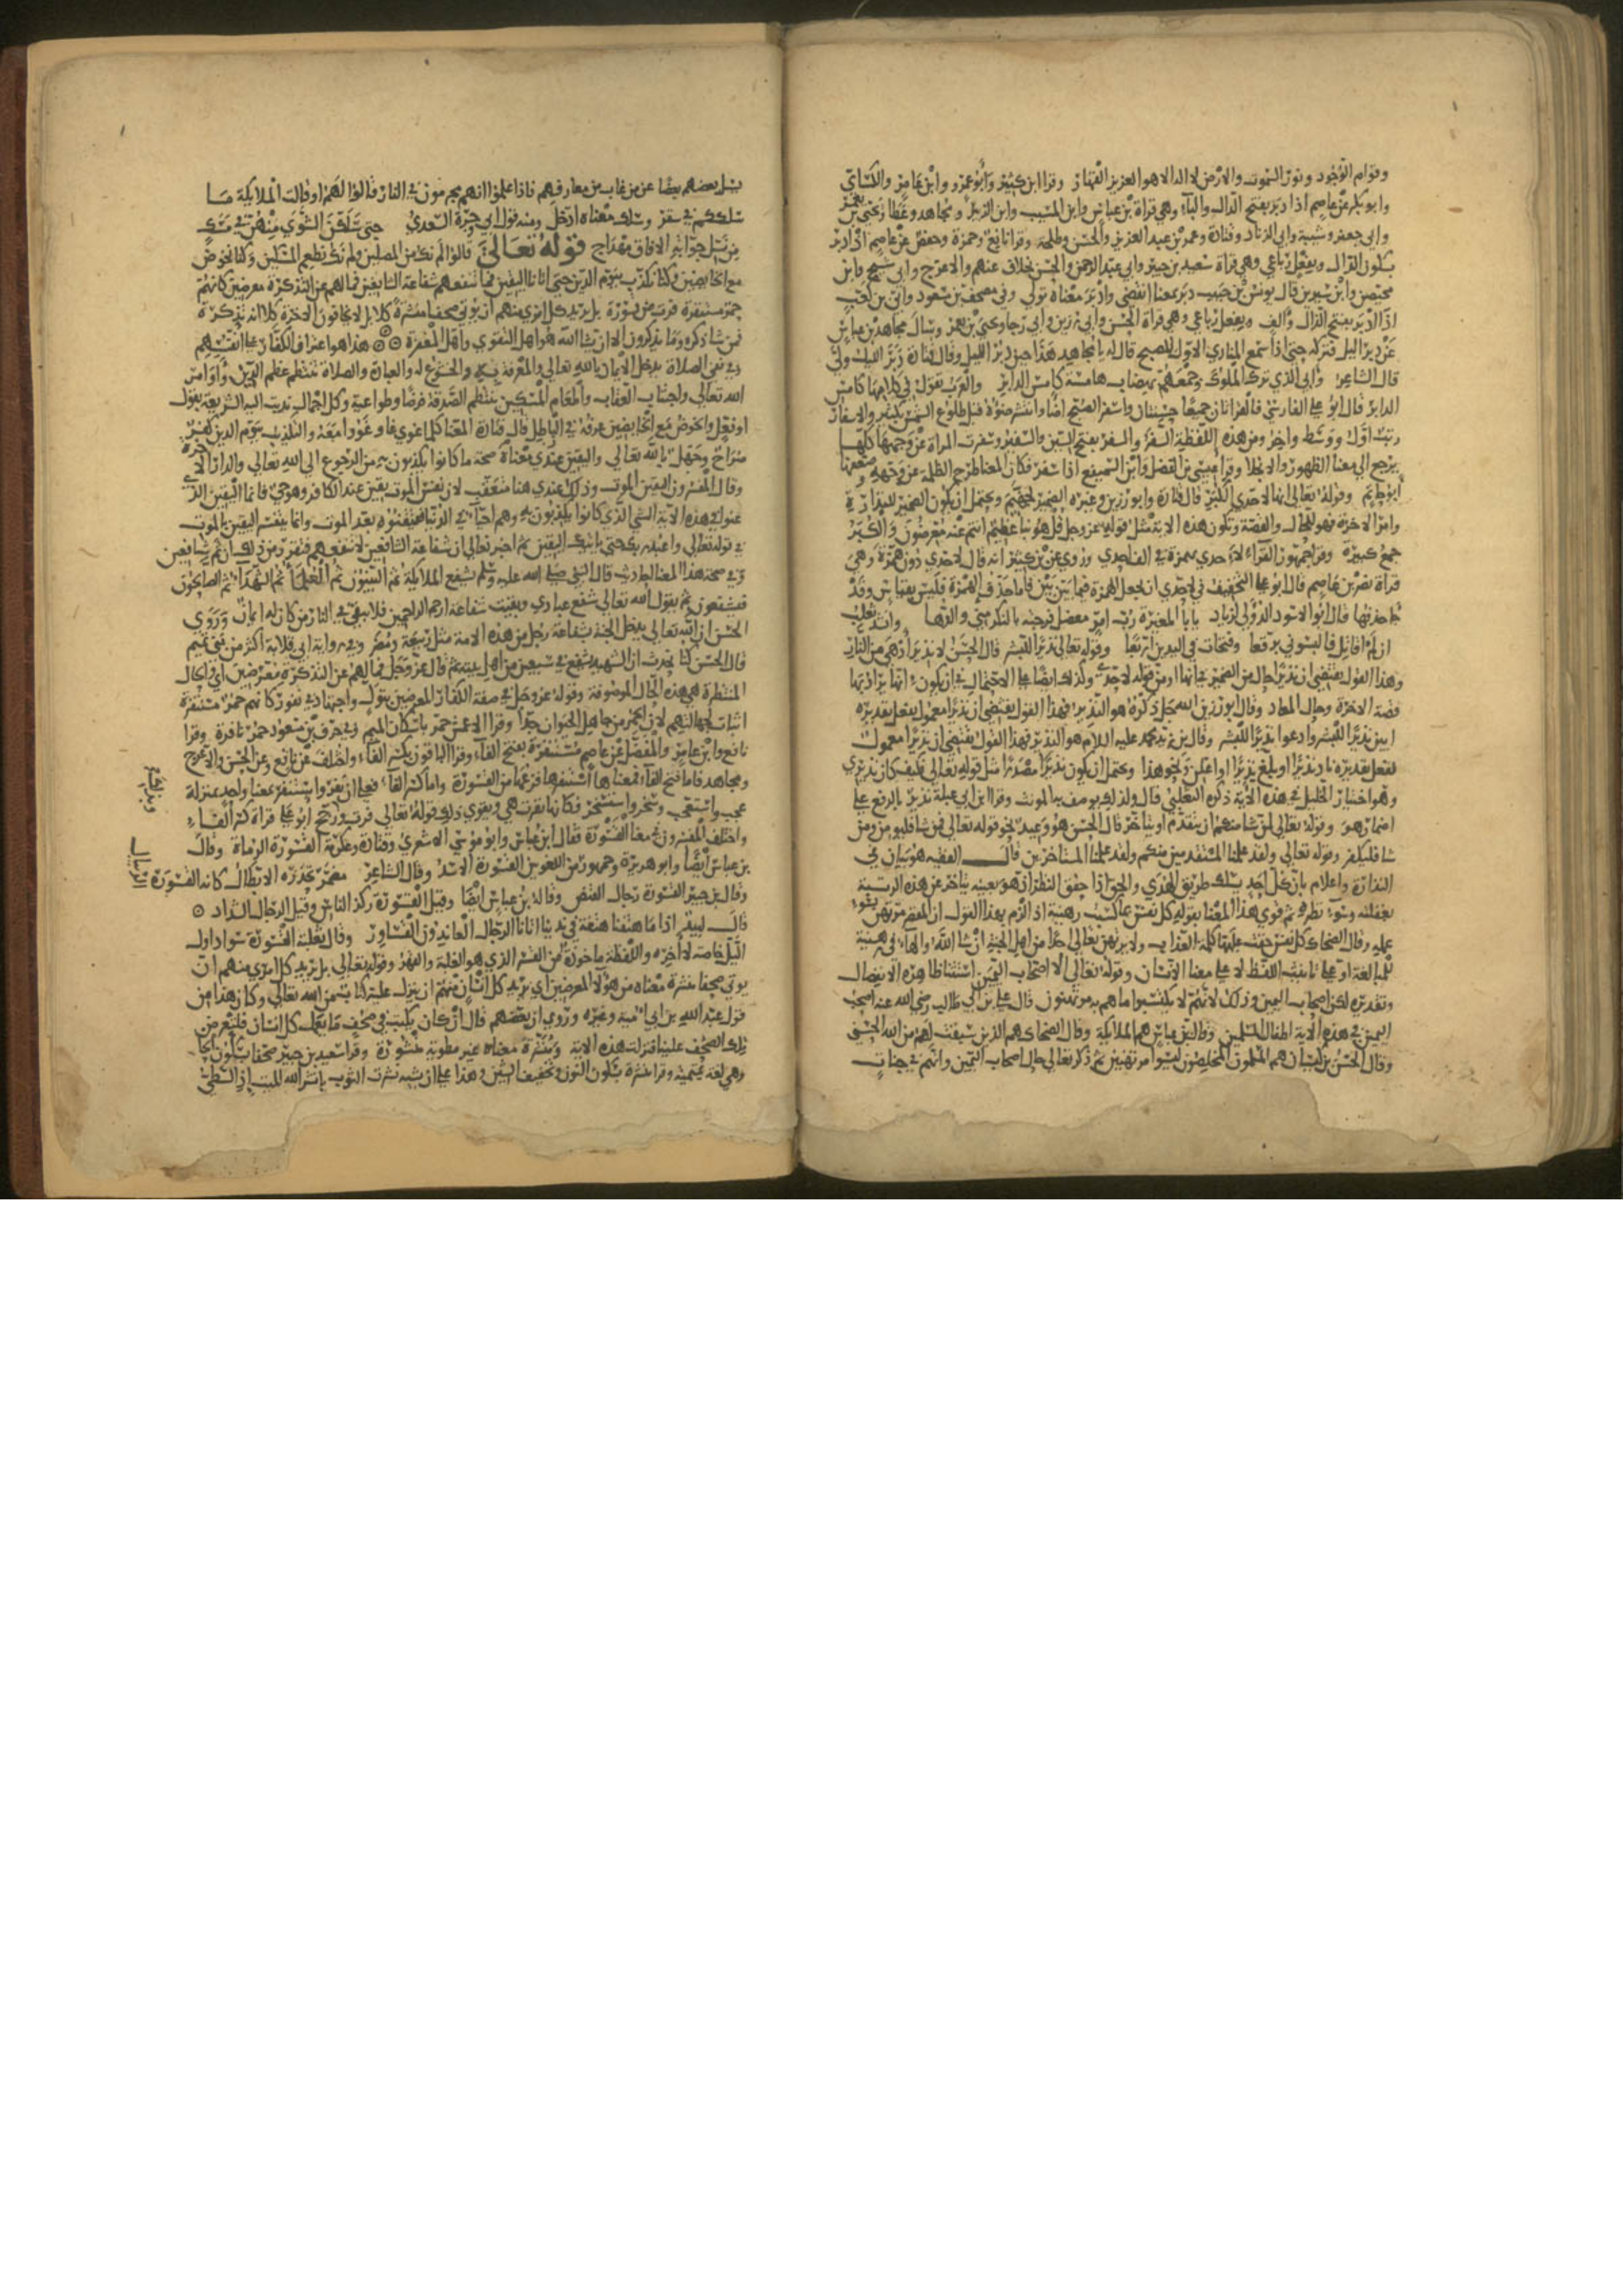 وقوام الوجود ونور السموت والارض لا اله الا هو العزيز القهار وقرا ابن كثير وابو عمرو وابن عامر والكساي
وابو بكر عن عاصم اذا دبر بفتح الدال والبآء وهي قراة بن عباس وابن المسيب وابن الزبير ومجاهد وعطا ويحيى بن يعمر
وابي جعفر وشيبة وابي الزناد وقتادة وعمر بن عبد العزيز والحسن وطلحة وقرا نافع وحمزة وحفص عن عاصم اذ ادبر
بسكون الدال وبفعل رباعي وهي قراة سعيد بن جبير وابي عبد الرحمن والحسن بخلاف عنهم والاعرج وابي شيخ وابن
محيصن وابن سيرين قال يونس بن حبيب دبر معنا انقضى وادبر معناه تولى وفي مصحف بن مسعود وابي بن كعب
اذا ادبر بفتح الدال والف وبفعل رباعي وهي قراة الحسن وابي رزين وابي رجا ويحيى بن يعمر وسال مجاهد بن عباس
عن دبر اليل فتركه حتى اذا سمع المنادي الاول للصبح قال له يا مجاهد هذا حين دبر الليل وقال قتادة دبر الليل ولى
قال الشاعر وابي الذي ترك الملوك وجمعهم بصهاب هامدة كامس الدابر والعرب تقول في كلامها كامس
الدابر قال ابو علي الفارسي فالقراتان جميعا حسنتان واسفر الصبح اضا وانتشر ضوؤه قبل طلوع الشمس بكثير والاسفار
رتب اول ووسط واخر ومن هذه اللفظة السفر والسفر بفتح السين والسفير وسفرت المراة عن وجهها كلها
يرجع الى معنا الظهور والانجلا وقرا عيسى بن الفضل وابن السميفع اذا سفر فكان المعنا طرح الظلمة عن وجهه وضعفها
ابو حاتم وقوله تعالى انها لاحدى الكبر قال قتادة وابو رزين وغيره الضمير لجهنم ويحتمل ان يكون الضمير للنذارة
وامر الاخرة فهو للحال والقصة وتكون هذه الاية مثل قوله عز وجل قل هو نبا عظيم انتم عنه معرضون والكبر
جمع كبيرة وقرا جمهور القراء لاحدى بهمزة في الف احدي وروي عن بن كثير انه قال لاحدى دون همزة وهي
قراة نصر بن عاصم قال ابو علي التخفيف في لاحدى ان تجعل الهمزة فيها بين بين فاما حذف الهمزة فليس بقياس وقد
جا حذفها قال ابو الاسود الدؤلي لزياد يابا المغيرة رب امر معضل فرجته بالنكر مني والدها وانشد ثعلب
ان لم اقاتل فالبسوني برقعا وفتحات في اليدين اربعا وقوله تعالى نذيرا للبشر قال الحسن لا نذير ادهى من النار
وهذا القول يقتضي ان نذيرا حال من الضمير في انها او من قوله لاحدى وكذلك ايضا على الاحتمال في ان يكون انها يراد بها
قصة الاخرة وحال المعاد وقال ابو رزين الله جل ذكره هو النذير فهذا القول يقتضي ان نذيرا معمول بفعل تقديره
وهو اختيار الخليل في هذه الاية ذكره الثعلبي قال ولذلك يوصف به المونث وقرا ابن ابي عبلة نذير بالرفع على
اضمار هو وقوله تعالى لمن شا منكم ان يتقدم او يتاخر قال الحسن هو وعيد نحو قوله تعالى فمن شا فليومن ومن
شا فليكفر وقوله تعالى ولقد علمنا المستقدمين منكم ولقد علمنا المستاخرين قال الفقيه هو بيان في
النذارة واعلام بان كل احد يسلك طريق الهدى والحق اذا حقق النظر اذ هو بعينه يتاخر عن هذه الرتبة
بغفلته وسوء نظره ثم قوى هذا المعنا بقوله كل نفس بما كسبت رهينة اذ الزم بهذا القول ان المقصر مرتهن بسوء
عمله وقال الضحاك كل نفس حقت عليها كلمة العذاب ولا يرتهن تعالى احدا من اهل الجنة ان شا الله والهاء في رهينة
للمبالغة او على تانيث اللفظ لا على معنا الانسان وقوله تعالى الا اصحاب اليمين استثنا ظاهره الانفصال
وتقديره لكن اصحاب اليمين وذلك لانهم لا يكتسبوا ما هم به مرتهنون قال علي بن ابي طالب رضي الله عنه اصحب
اليمين في هذه الاية اطفال المسلمين وقال ابن عباس هم الملايكة وقال الضحاك هم الذين سبقت لهم من الله الحسنى
وقال الحسن بن كيسان هم المسلمون المخلصون ليسوا مرتهنين ثم ذكر تعالى حال اصحاب اليمين وانهم في جنات
يسل بعضهم بعضا عن من غاب من معارفهم فاذا علموا انهم مجرمون في النار قالوا لهم او قالت الملايكة ما
سلككم في سقر وسلك معناه ادخل ومنه قول ابي وجزة السعدي حتى سلكن الشوى منهن في مسك
من نسل جوابة الافاق مهداج قوله تعالى قالوا لم نك من المصلين ولم نك نطعم المسكين وكنا نخوض
مع الخايضين وكنا نكذب بيوم الدين حتى اتانا اليقين فما تنفعهم شفاعة الشافعين فما لهم عن التذكرة معرضين كانهم
حمر مستنفرة فرت من قسورة بل يريد كل امري منهم ان يوتى صحفا منشرة كلا بل لا يخافون الاخرة كلا انه تذكرة
فمن شا ذكره وما يذكرون الا ان يشا الله هو اهل التقوى واهل المغفرة هذا هو اعتراف الكفار على انفسهم
وفي نفي الصلاة يدخل الايمان بالله تعالى والمعرفة به والخشوع له والعبادة والصلاة تنتظم عظم الدين واوامر
الله تعالى واجتناب العقاب واطعام المسكين ينتظم الصدقة فرضا وطواعية وكل اجمال ندبت اليه الشريعة بقول
او فعل والخوض مع الخايضين عرفه في الباطل قال قتادة المعنا كلما غوى غاو غووا معه والتكذيب بيوم الدين كفر
صراح وجهل بالله تعالى واليقين عندي معناه صحة ما كانوا يكذبون به من الرجوع الى الله تعالى والدار الاخرة
وقال المفسرون اليقين الموت وذلك عندي هنا متعقب لان نفس الموت يقين عند الكافر وهو حي فانما اليقين الذي
عنوا في هذه الاية الشي الذي كانوا يكذبون به وهم احيا في الدنيا فتيقنوه بعد الموت وانما يفسر اليقين بالموت
في قوله تعالى واعبد ربك حتى ياتيك اليقين ثم اخبر تعالى ان شفاعة الشافعين لا تنفعهم فتقرر من ذلك ان ثم شافعين
وفي صحة هذا المعنا احاديث قال النبي صلى الله عليه وسلم يشفع الملايكة ثم النبيون ثم العلماء ثم الشهدا ثم الصالحون
فيشفعون ثم يقول الله تعالى شفع عبادي وبقيت شفاعة ارحم الراحمين فلا يبقى في النار من كان له ايمان وروي
الحسن ان الله تعالى يدخل الجنة بشفاعة رجل من هذه الامة مثل ربيعة ومضر وفي رواية ابي قلابة اكثر من بني تميم
قال الحسن كنا نتحدث ان الشهيد يشفع في سبعين من اهل بيته ثم قال عز وجل فما لهم عن التذكرة معرضين اي والحال
المنتظرة هي هذه الحال الموصوفة وقوله عز وجل في صفة الكفار المعرضين بتول واجتهاد في نفور كانهم حمر مستنفرة
اثبات لجهالتهم لان الحمر من جاهل الحيوان جدا وقرا الاعمش حمر باسكان الميم وفي حرف بن مسعود حمر نافرة وقرا
نافع وابن عامر والمفضل عن عاصم مستنفرة بفتح الفاء وقرا الباقون بكسر الفاء واختلف عن نافع وعن الحسن والاعرج
ومجاهد فاما فتح الفاء فمعناها استنفرها فزعها من القسورة واما كسر الفاء فعلى ان نفر واستنفر معنا واحد بمنزلة
عجب واستعجب وسخر واستسخر فكانها نفرت هي ويقوي ذلك قوله تعالى فرت ورجح ابو علي قراة كسر الفاء
واختلف المفسرون في معنا القسورة فقال ابن عباس وابو موسى الاشعري وقتادة وعكرمة القسورة الرماة وقال
بن عباس ايضا وابو هريرة وجمهور من اللغويين القسورة الاسد وقال الشاعر مضمر تحذره الابطال كانه القسورة
الريبال
وقال بن جبير القسورة رجال القنص وقاله بن عباس ايضا وقيل القسورة ركز الناس وقيل الرجال الشداد
قال لبيد اذا ما هتفنا هتفة في ندينا اتانا الرجال العاندون القساور وقال ثعلبة القسورة سواد اول
الليل خاصة لا اخره واللفظة ماخوذة من القسر الذي هو الغلبة والقهر وقوله تعالى بل يريد كل امري منهم ان
يوتى صحفا منشرة معناه من هؤلا المعرضين اي يريد كل انسان منهم ان ينزل عليه كتاب من الله تعالى وكان هذا من
قول عبد الله بن ابي امية وغيره وروي ان بعضهم قال ان كان يكتب في صحف ما يعمل كل انسان فلتعرض
تلك الصحف علينا فنزلت هذه الاية ومنشرة معناه غير مطوية منشورة وقرا سعيد بن جبير صحفا بسكون الحا
وهي لغة يمنية وقرا منشرة بسكون النون وتخفيف الشين وهذا على ان يشبه نشرت الثوب بانشر الله الميت